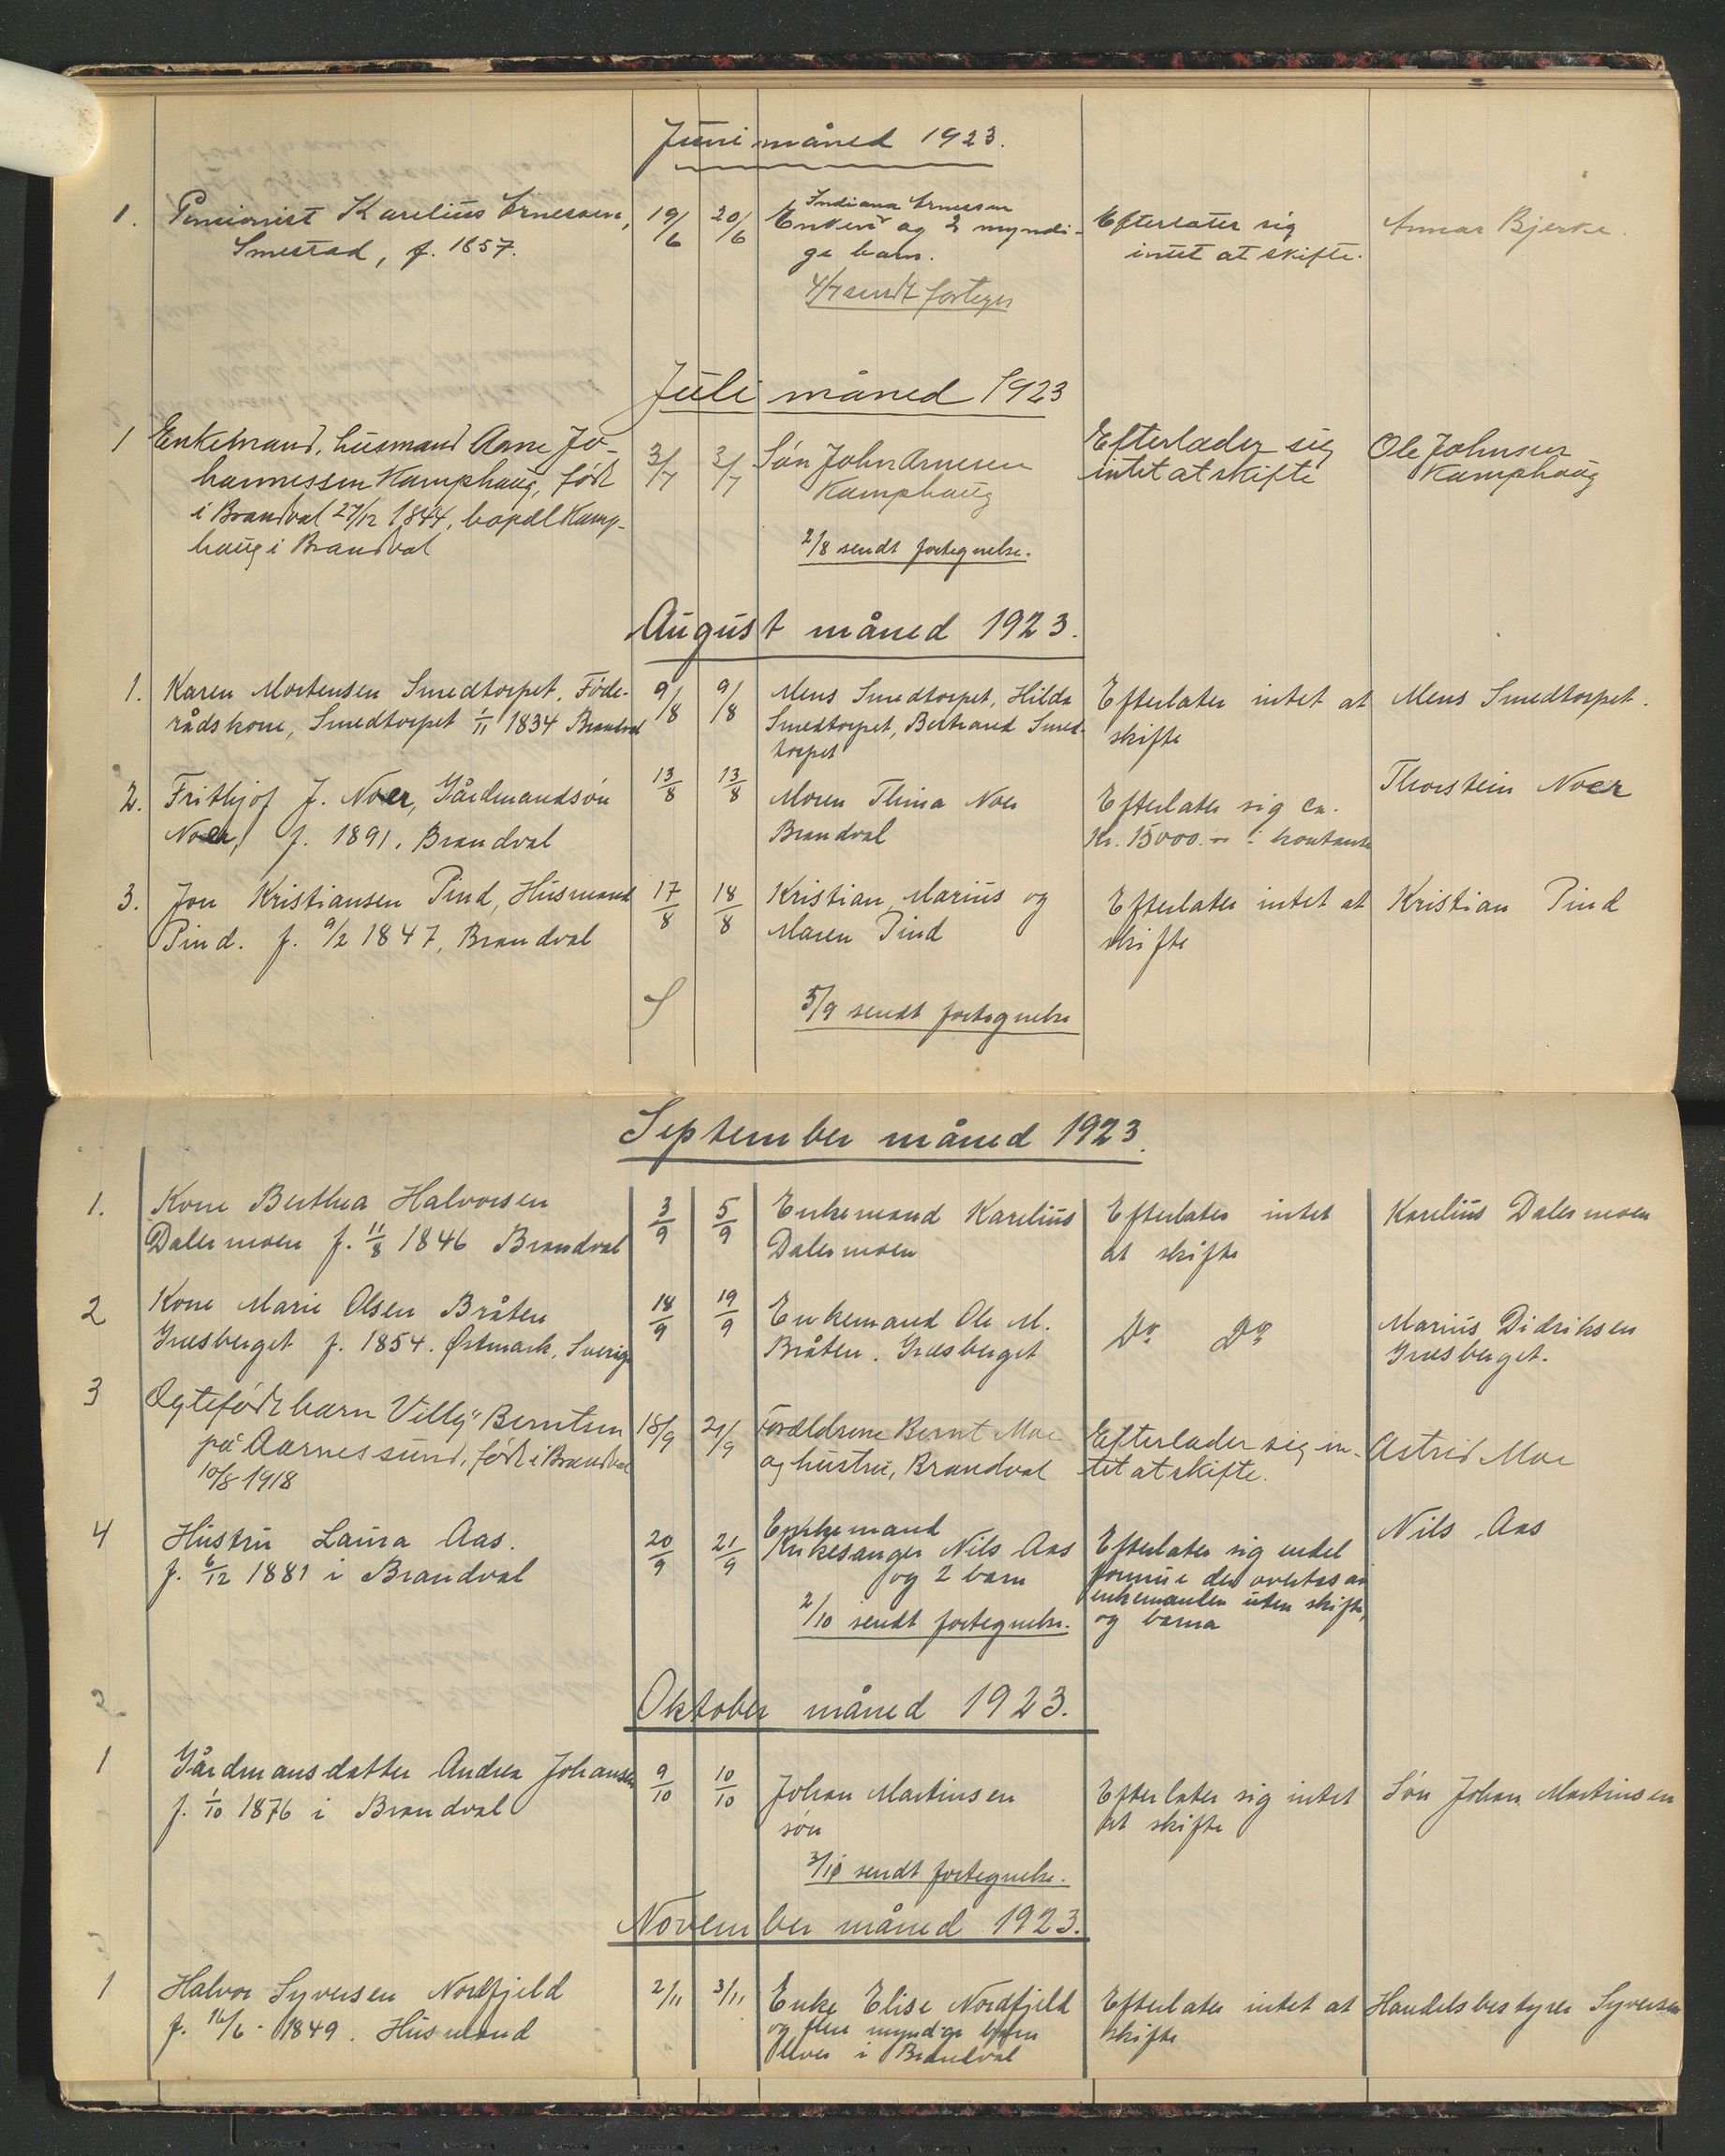 Juni måned 1923.
1. Pensionist Karelius Ernessen, 19/6 20/6 Indiana Ernessen Efterlater sig Annar Bjerke.
Smestad, f. 1857. Enken og 2 myndi- intet at skifte.
ge barn.
4/7 sendt fortegn
Juli måned 1923
1 Enkemand, husmand Arne Jo- 3/7 3/7 Søn John Arnesen Efterlader sig Ole Johnsen
hannessen Kamphaug, født Kamphaug intet at skifte Kamphaug
i Brandval 27/12 1844, bopæl Kamp-
haug i Brandval 2/8 sendt fortegnelse.
August måned 1923.
1. Karen Mortensen Smedtorpet, Føde- 9/8 9/8 Mens Smedtorpet, Hilda Efterlater intet at Mens Smedtorpet.
rådskone, Smedtorpet 1/11 1834 Brandval Smedtorpet, Bertrand Smed- skifte
torpet
2. Frithjof J. Noer, Gårdmandsøn 13/8 13/8 Moren Thina Noer Efterlater sig ca. Thorstein Noer
Noer, f. 1891, Brandval Brandval Kr. 15000.- i kontanter
3. Jon Kristiansen Pind, Husmand 17/8 18/8 Kristian, Marius og Efterlater intet at Kristian Pind
Pind. f. 9/2 1847, Brandval Maren Pind skifte
5/9 sendt fortegnelse
September måned 1923.
1. Kone Berthea Halvorsen 3/9 5/9 Enkemand Karelius Efterlater intet Karelius Dalermoen
Dalermoen f. 11/8 1846 Brandval Dalermoen at skifte
2 Kone Marie Olsen Bråten 18/9 19/9 Enkemand Ole M. Do Do Marius Didriksen
Græsberget f. 1854. Østmark, Sverige Bråten. Græsberget Græsberget.
3 Ægtefødt barn Villy Berntsen 18/9 21/9 Forældrene Bernt Moe Efterlader sig in- Astrid Moe
på Aarnessund, født i Brandval og hustru, Brandval tet at skifte.
10/8 1918
4 Hustru Laura Aas. 20/9 21/9 Enkemand Efterlater sig endel Nils Aas
f. 6/12 1881 i Brandval Kirkesanger Nils Aas formue der overtas av
og 2 barn enkemanden uten skifte,
2/10 sendt fortegnelse. og barna
Oktober måned 1923.
1 Gårdmansdatter Andrea Johansen 9/10 10/10 Johan Martinsen Efterlater sig intet Søn Johan Martinsen
f. 1/10 1876 i Brandval søn at skifte
3/10 sendt fortegnelse.
November måned 1923.
1 Halvor Syversen Nordfjeld 2/11 3/11 Enke Elise Nordfjeld Efterlater intet at Handelsbestyrer Syversen
f. 16/6 1849. Husmand og flere myndige barn skifte
lever i Brandval